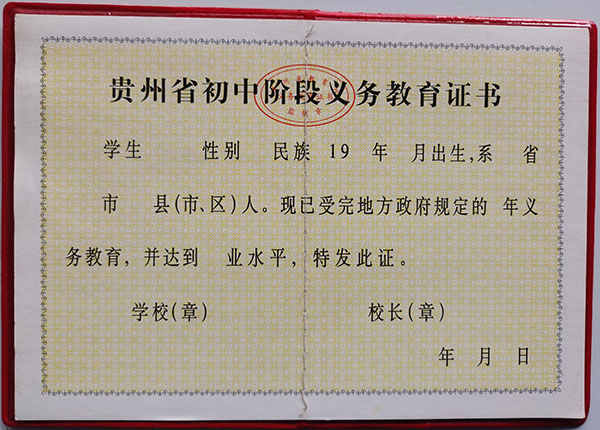 贵州省初中阶段义务教育证书
学生 性别 民族 19 年 月出生,系 省
市 县(市、区)人。现已受完地方政府规定的 年义
务教育,并达到 业水平,特发此证。
学校(章) 校长(章)
年 月 日